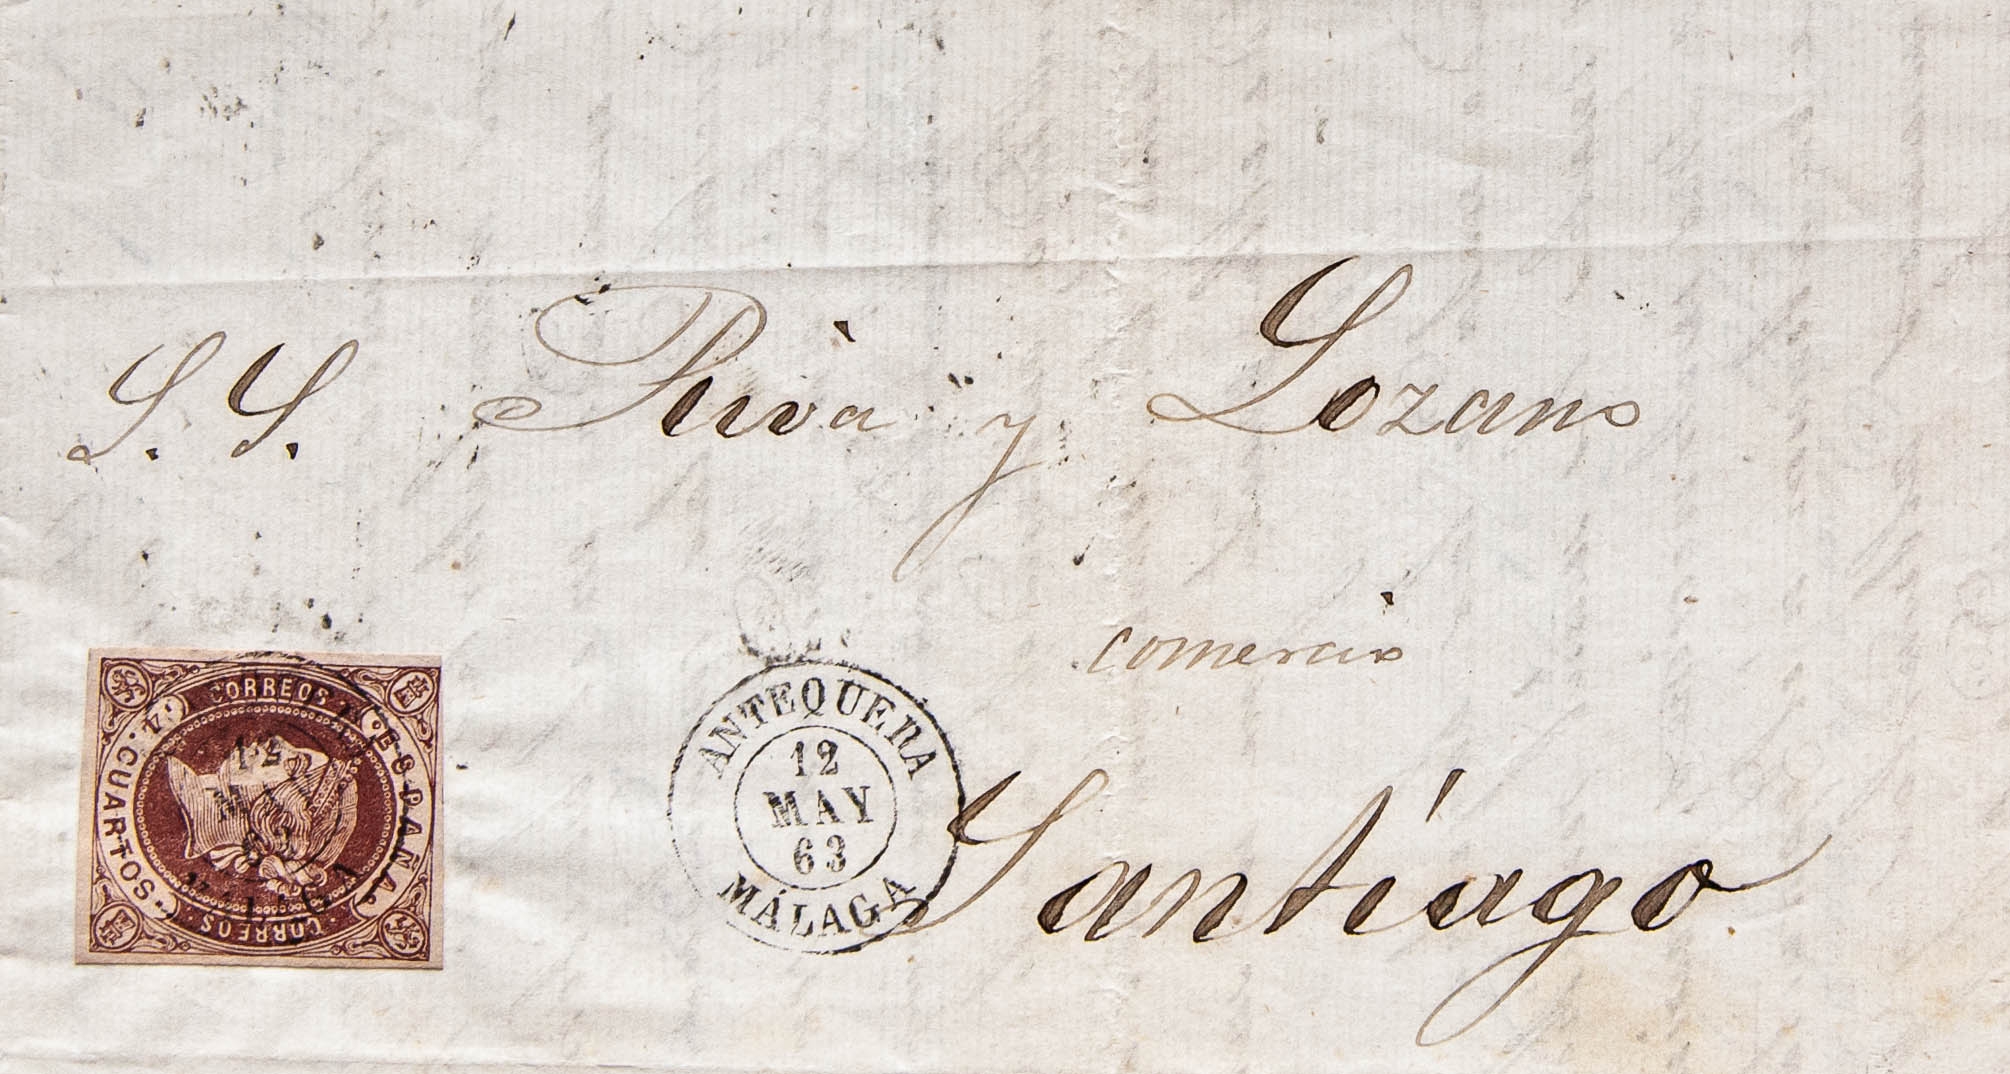 S. S. Riva y Lozano
comercio
Santiago
ANTEQUERA
12
MAY
63
MÁLAGA
CORREOS
ESPAÑA.
4. CUARTOS.
CORREOS
12
MAY